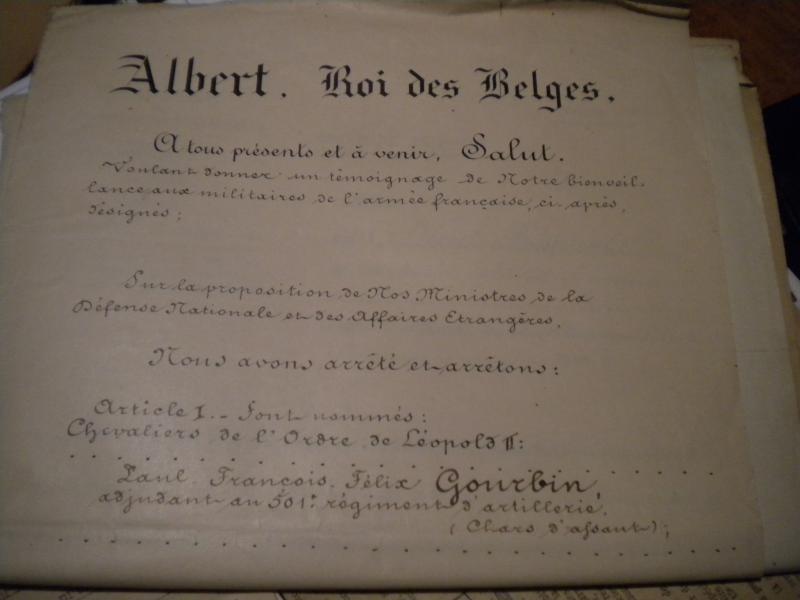 Albert. Roi des Belges.
A tous présents et à venir, Salut.
Voulant donner un témoignage de Notre bienveil-
lance aux militaires de l'armée française, ci-après,
désignés;
Sur la proposition de Nos Ministres de la
Défense Nationale et des Affaires Etrangères,
Nous avons arrêté et arrêtons:
Article I.- Sont nommés:
Chevaliers de l'Ordre de Léopold II:
Paul. François. Félix Gourbin,
adjudant au 501e régiment d'artillerie.
(Chars d'assaut);